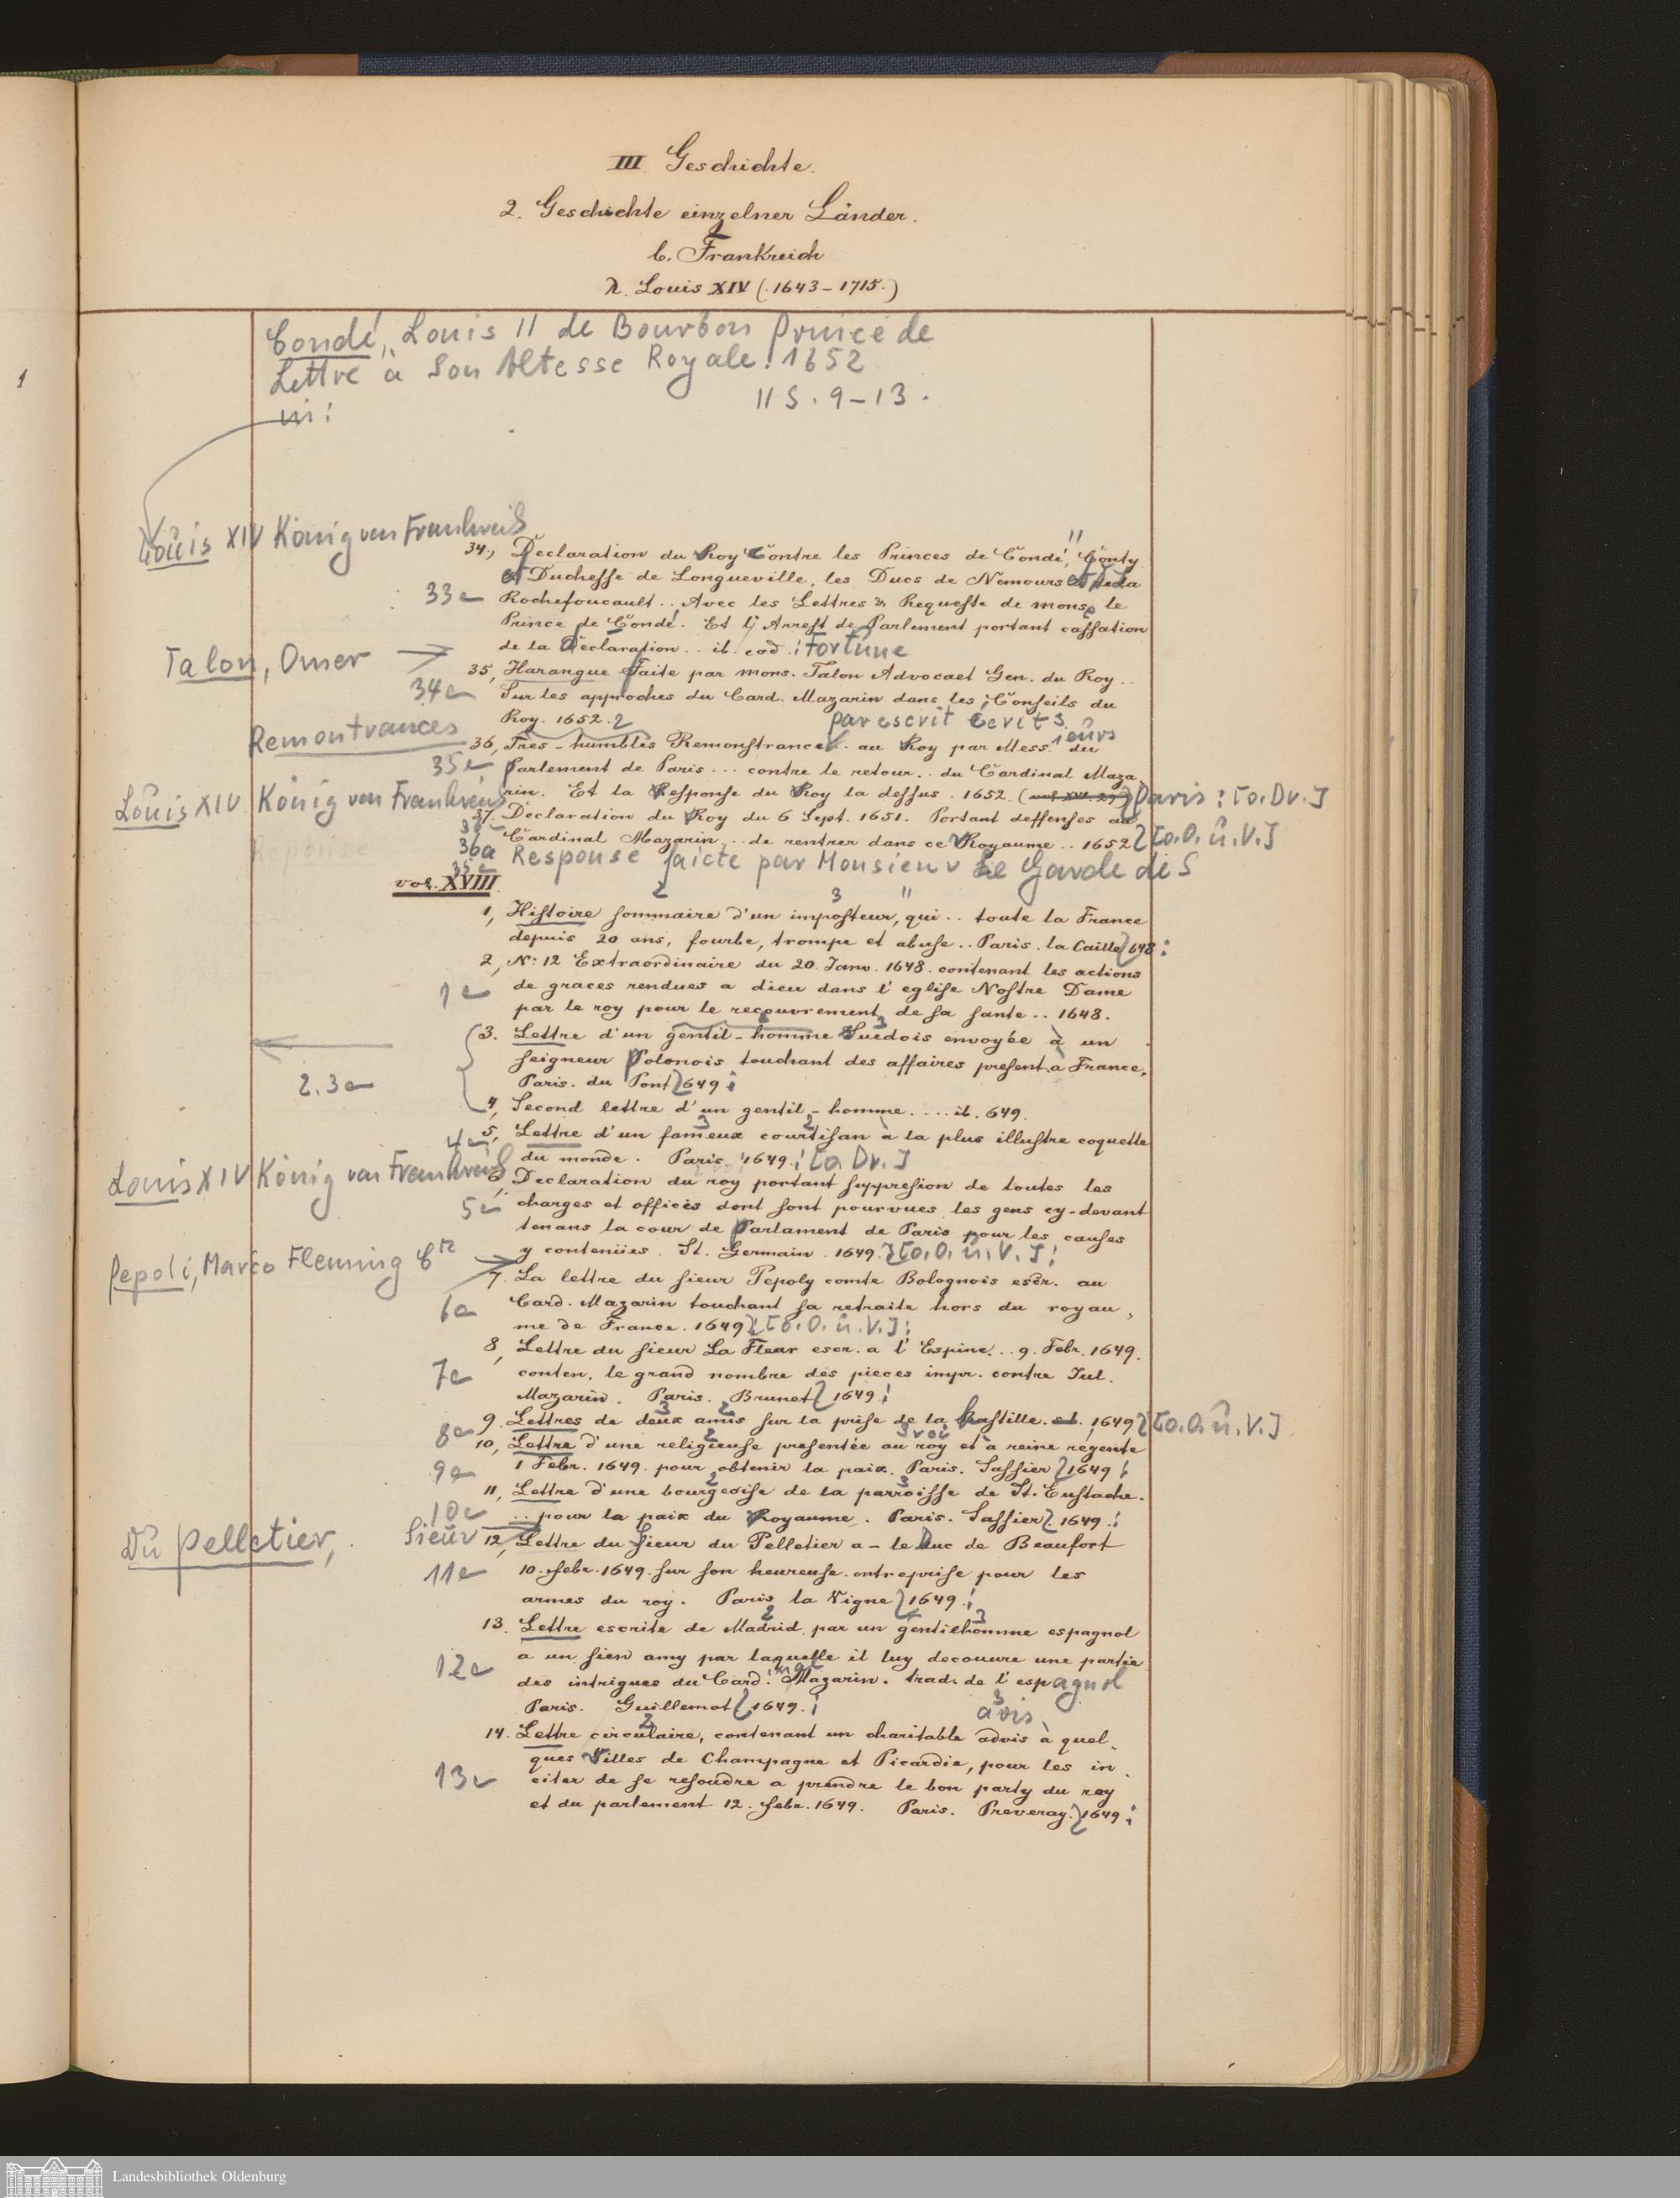 III Geschichte.
2. Geschichte einzelner Länder.
b. Frankreich
λ. Louis XIV (1643-1715.)
1
Condé, Louis II de Bourbon Prince de
Lettre à Son Altesse Royale. 1652
11 S. 9-13.
in:
Louis XIV König von Frankreich
34., Declaration du Roy Contre les Princes de Condé, Conty
et Duchesse de Longueville, les Ducs de Nemours et de la
33a Rochefoucault .. Avec les Lettres & Requeste de mons. le
Prince de Condé. Et l'Arrest de Parlement portant cassation
de la Declaration .. ib. eod. : Fortune
Talon, Omer
35, Harangue faite par mons. Talon Advocaet Gen. du Roy ..
34a Sur les approches du Card. Mazarin dans les Conseils du
Roy. 1652. 2
par escrit Ecrits
Remontrances
36, Tres-humbles Remonstrances .. au Roy par Mess.ieurs du
35a Parlement de Paris ... contre le retour .. du Cardinal Maza-
rin. Et la Response du Roy la dessus. 1652. (vol. XVI. 29) Paris: [o. Dr.]
Louis XIV König von Frankreich
37. Declaration du Roy du 6 Sept. 1651. Portant deffenses au
Cardinal Mazarin .. de rentrer dans ce Royaume .. 1652 [o. O. u. V.]
36a Response faicte par Monsieur Le Garde des
vol. XVIII
1, Histoire sommaire d'un imposteur, qui .. toute la France
depuis 20 ans, fourbe, trompe et abuse .. Paris. la Caille 648:
2, N: 12 Extraordinaire du 20. Janv. 1648. contenant les actions
1a de graces rendues a dieu dans l'eglise Nostre Dame
par le roy pour le recouvrement de sa sante .. 1648.
3. Lettre d'un gentil-homme Suedois envoyée à un
seigneur Polonois touchant des affaires present. a France,
2.3a Paris. du Pont 649:
4, Second lettre d'un gentil-homme .... ib. 649.
4a 5, Lettre d'un fameux courtisan a la plus illustre coquette
du monde. Paris. 1649. : [o Dr.]
Louis XIV König von Frankreich
6, Declaration du roy portant suppresion de toutes les
5a charges et offices dont sont pourvues les gens cy-devant
tenans la cour de Parlament de Paris pour les causes
y contenües. St. Germain. 1649. [o. O. u. V.]:
Pepoli, Marco Fleming Cte
7. La lettre du sieur Pepoly comte Bolognois escr. au
6a Card. Mazarin touchant sa retraite hors du royau-
me de France. 1649 [o. O. u. V.]:
8, Lettre du sieur La Fleur escr. a l'Espine. .. 9. Febr. 1649.
7a conten. le grand nombre des pieces impr. contre Jul.
Mazarin. Paris. Brunet 1649.:
8a 9. Lettres de deux amis sur la prise de la Bastille. 1649 [o. O. u. V.]
10, Lettre d'une religieuse presentée au roy et à reine regente
9a 1 Febr. 1649. pour obtenir la paix. Paris. Sassier 1649:
11, Lettre d'une bourgeoise de la parroisse de St. Eustache.
10a .. pour la paix du Royaume. Paris. Sassier 1649.:
Du Pelletier, Sieur
12, Lettre du sieur du Pelletier a - le Duc de Beaufort
11a 10. febr. 1649. sur son heureuse entreprise pour les
armes du roy. Paris la Vigne 1649.:
13. Lettre escrite de Madrid par un gentilhomme espagnol
12a a un sien amy par laquelle il luy decouvre une partie
des intrigues du Card. Mazarin. trad. de l'espagnol
Paris. Guillemot 1649.:
avis
14. Lettre circulaire, contenant un charitable advis à quel-
ques Villes de Champagne et Picardie, pour les in-
13a citer de se resoudre a prendre le bon party du roy
et du parlement 12. febr. 1649. Paris. Preveray. 1649:
Landesbibliothek Oldenburg